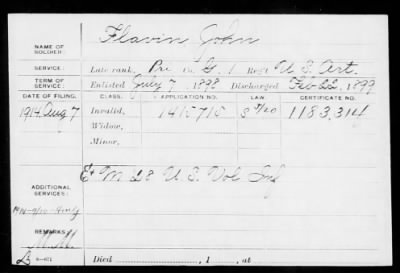 Flavin John
NAME OF SOLDIER:
SERVICE: Late rank, Pri Co. G, 1 Reg't U S Art.
TERM OF SERVICE: Enlisted July 7, 1898 Discharged Feb 22, 1899
DATE OF FILING. CLASS. APPLICATION NO. LAW. CERTIFICATE NO.
1914 Aug 7 Invalid, 1415715 1183,314
Widow,
Minor,
ADDITIONAL SERVICES: E M 28 U S Vol Inf
REMARKS:
Died , 1 , at